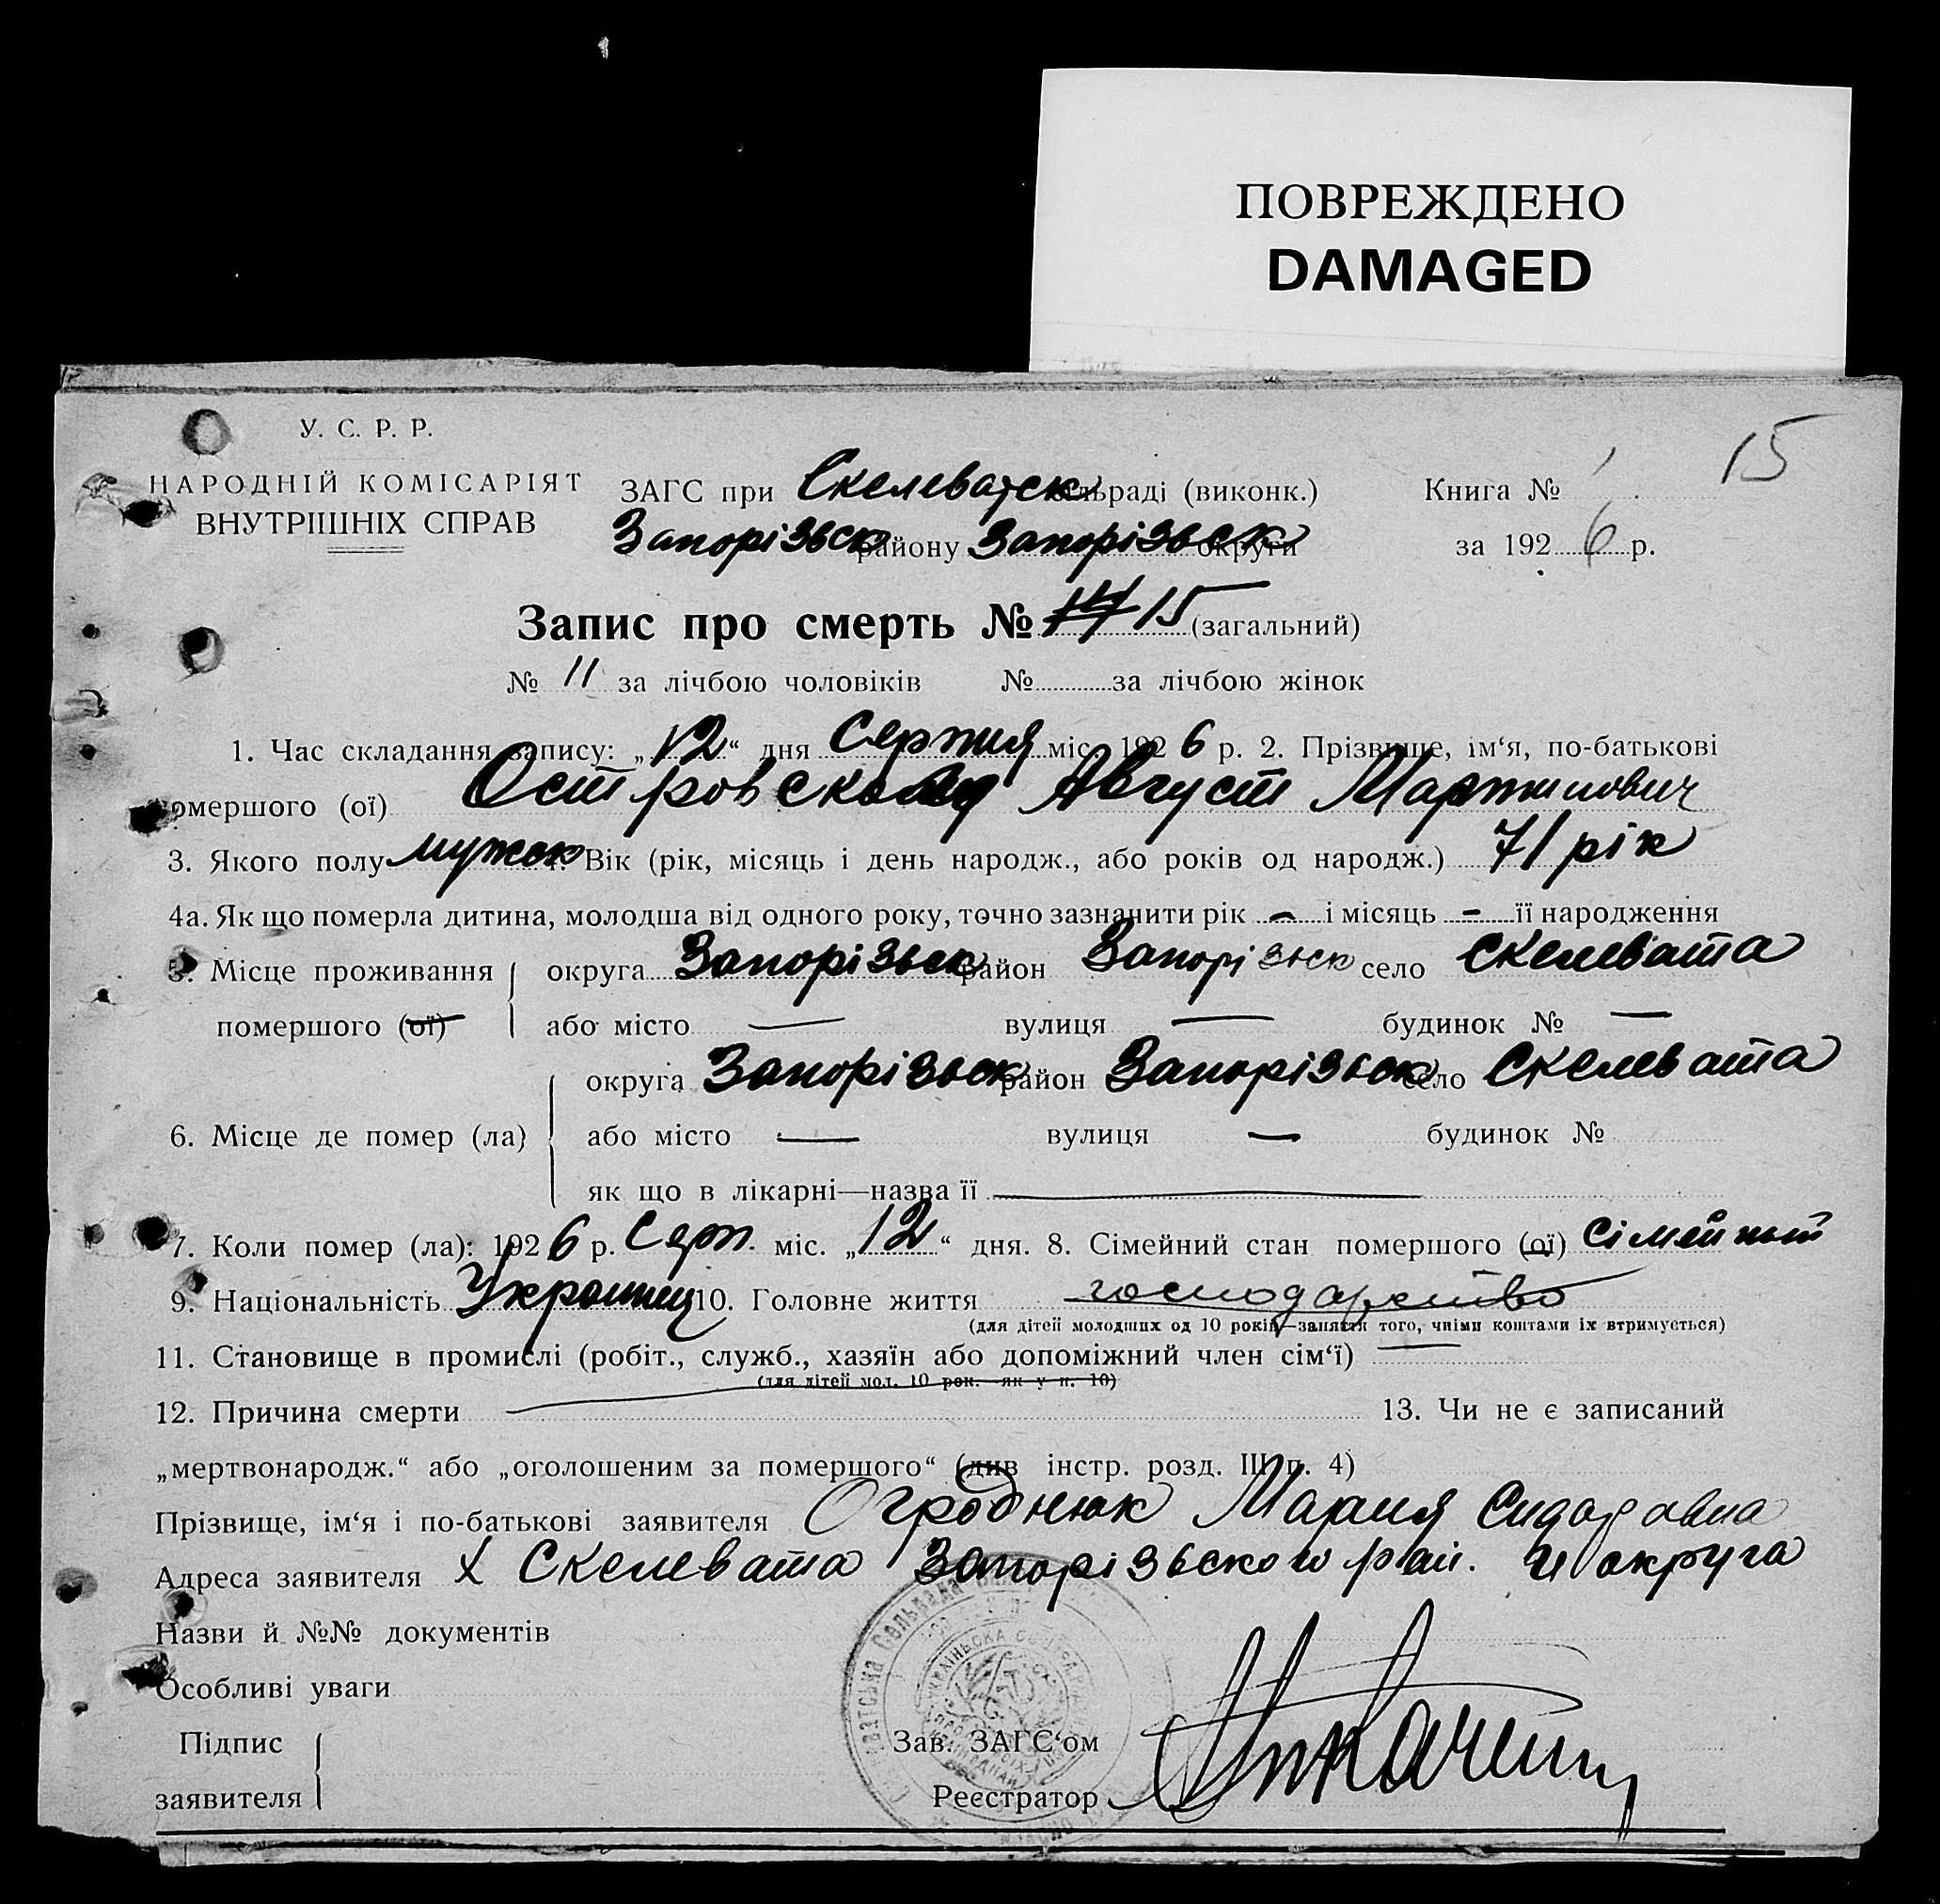 ПОВРЕЖДЕНО
DAMAGED
У. С. Р. Р.
15
НАРОДНІЙ КОМІСАРІЯТ
ВНУТРІШНІХ СПРАВ
ЗАГС при Скелеватск сільраді (виконк.)
Книга № 1
Запорізьск району Запорізьск округи
за 1926 р.
Запис про смерть № 14 15 (загальний)
№ 11 за лічбою чоловіків № за лічбою жінок
1. Час складання запису: „12“ дня Серпня міс. 1926 р. 2. Прізвище, ім‘я, по-батькові
помершого (ої) Август Мартинович
3. Якого полу мужск 4. Вік (рік, місяць і день народж., або років од народж.) 71 рік
4а. Як що померла дитина, молодша від одного року, точно зазначити рік - і місяць - її народження
5. Місце проживання округа Запорізьск район Запорізьск село Скелевата
помершого (ої) або місто — вулиця — будинок № —
округа Запорізьск район Запорізьск село Скелевата
6. Місце де помер (ла) або місто — вулиця — будинок №
як що в лікарні—назва її
7. Коли помер (ла): 1926 р. Серп. міс. „12“ дня. 8. Сімейний стан помершого (ої)
9. Національність 10. Головне життя господарство
(для дітей молодших од 10 років—заняття того, чиїми коштами їх втримується)
11. Становище в промислі (робіт., служб., хазяїн або допоміжний член сім‘ї) —
(для дітей мол. 10 рок.—як у п. 10)
12. Причина смерти 13. Чи не є записаний
„мертвонародж.“ або „оголошеним за помершого“ (див інстр. розд. III п. 4)
Прізвище, ім‘я і по-батькові заявителя Огроднюк Мария Сидоровна
Адреса заявителя х Скелевата Запорізьского рай. и округа
Назви й №№ документів
Особливі уваги
Підпис
заявителя
Зав. ЗАГС‘ом
Реєстратор